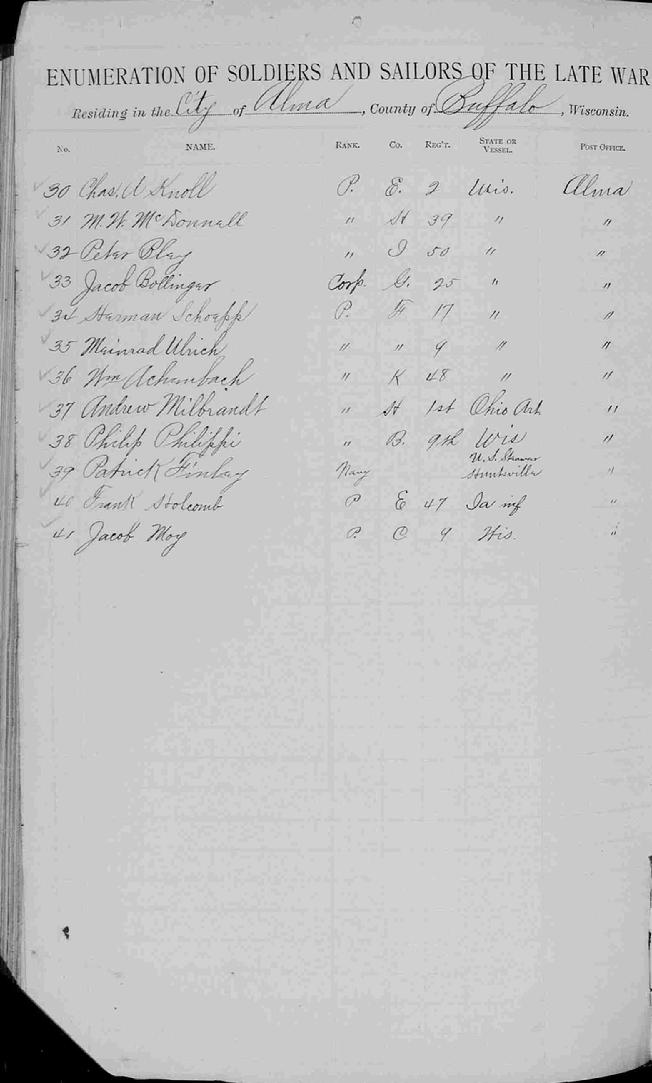 ENUMERATION OF SOLDIERS AND SAILORS OF THE LATE WAR
Residing in the City of Alma, County of Buffalo, Wisconsin.
No. NAME. RANK. Co. REG'T. STATE OR VESSEL. POST OFFICE.
30 Chas. A Knoll P. E. 2 Wis. Alma
31 M. W. McDonnell " H 39 " "
32 Peter Bley " I 50 " "
33 Jacob Bollinger Corp. G. 25 " "
34 Herman Schoepp P. F 17 " "
35 Meinrad Ulrich " " 9 " "
36 Wm Achenbach " K 48 " "
37 Andrew Milbrandt " H 1st Ohio Art "
38 Philip Philippi " B. 9th Wis "
39 Patrick Finley Navy U. S. Steamer Huntsville "
40 Frank Holcomb P E 47 Ia inf "
41 Jacob Moy P. C 9 Wis. "